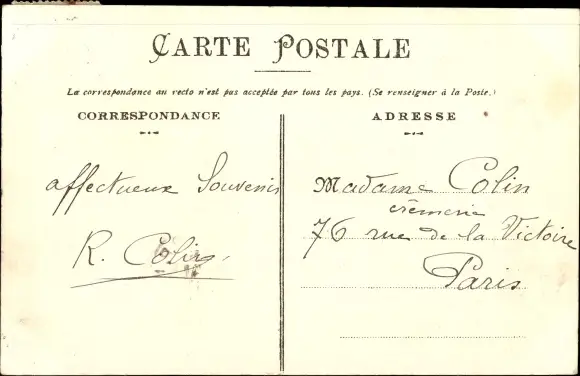 CARTE POSTALE
La correspondance au recto n'est pas acceptée par tous les pays. (Se renseigner à la Poste.)
CORRESPONDANCE
affectueux Souvenir
R. Colin
ADRESSE
Madame Colin
crêmerie
76 rue de la Victoire
Paris